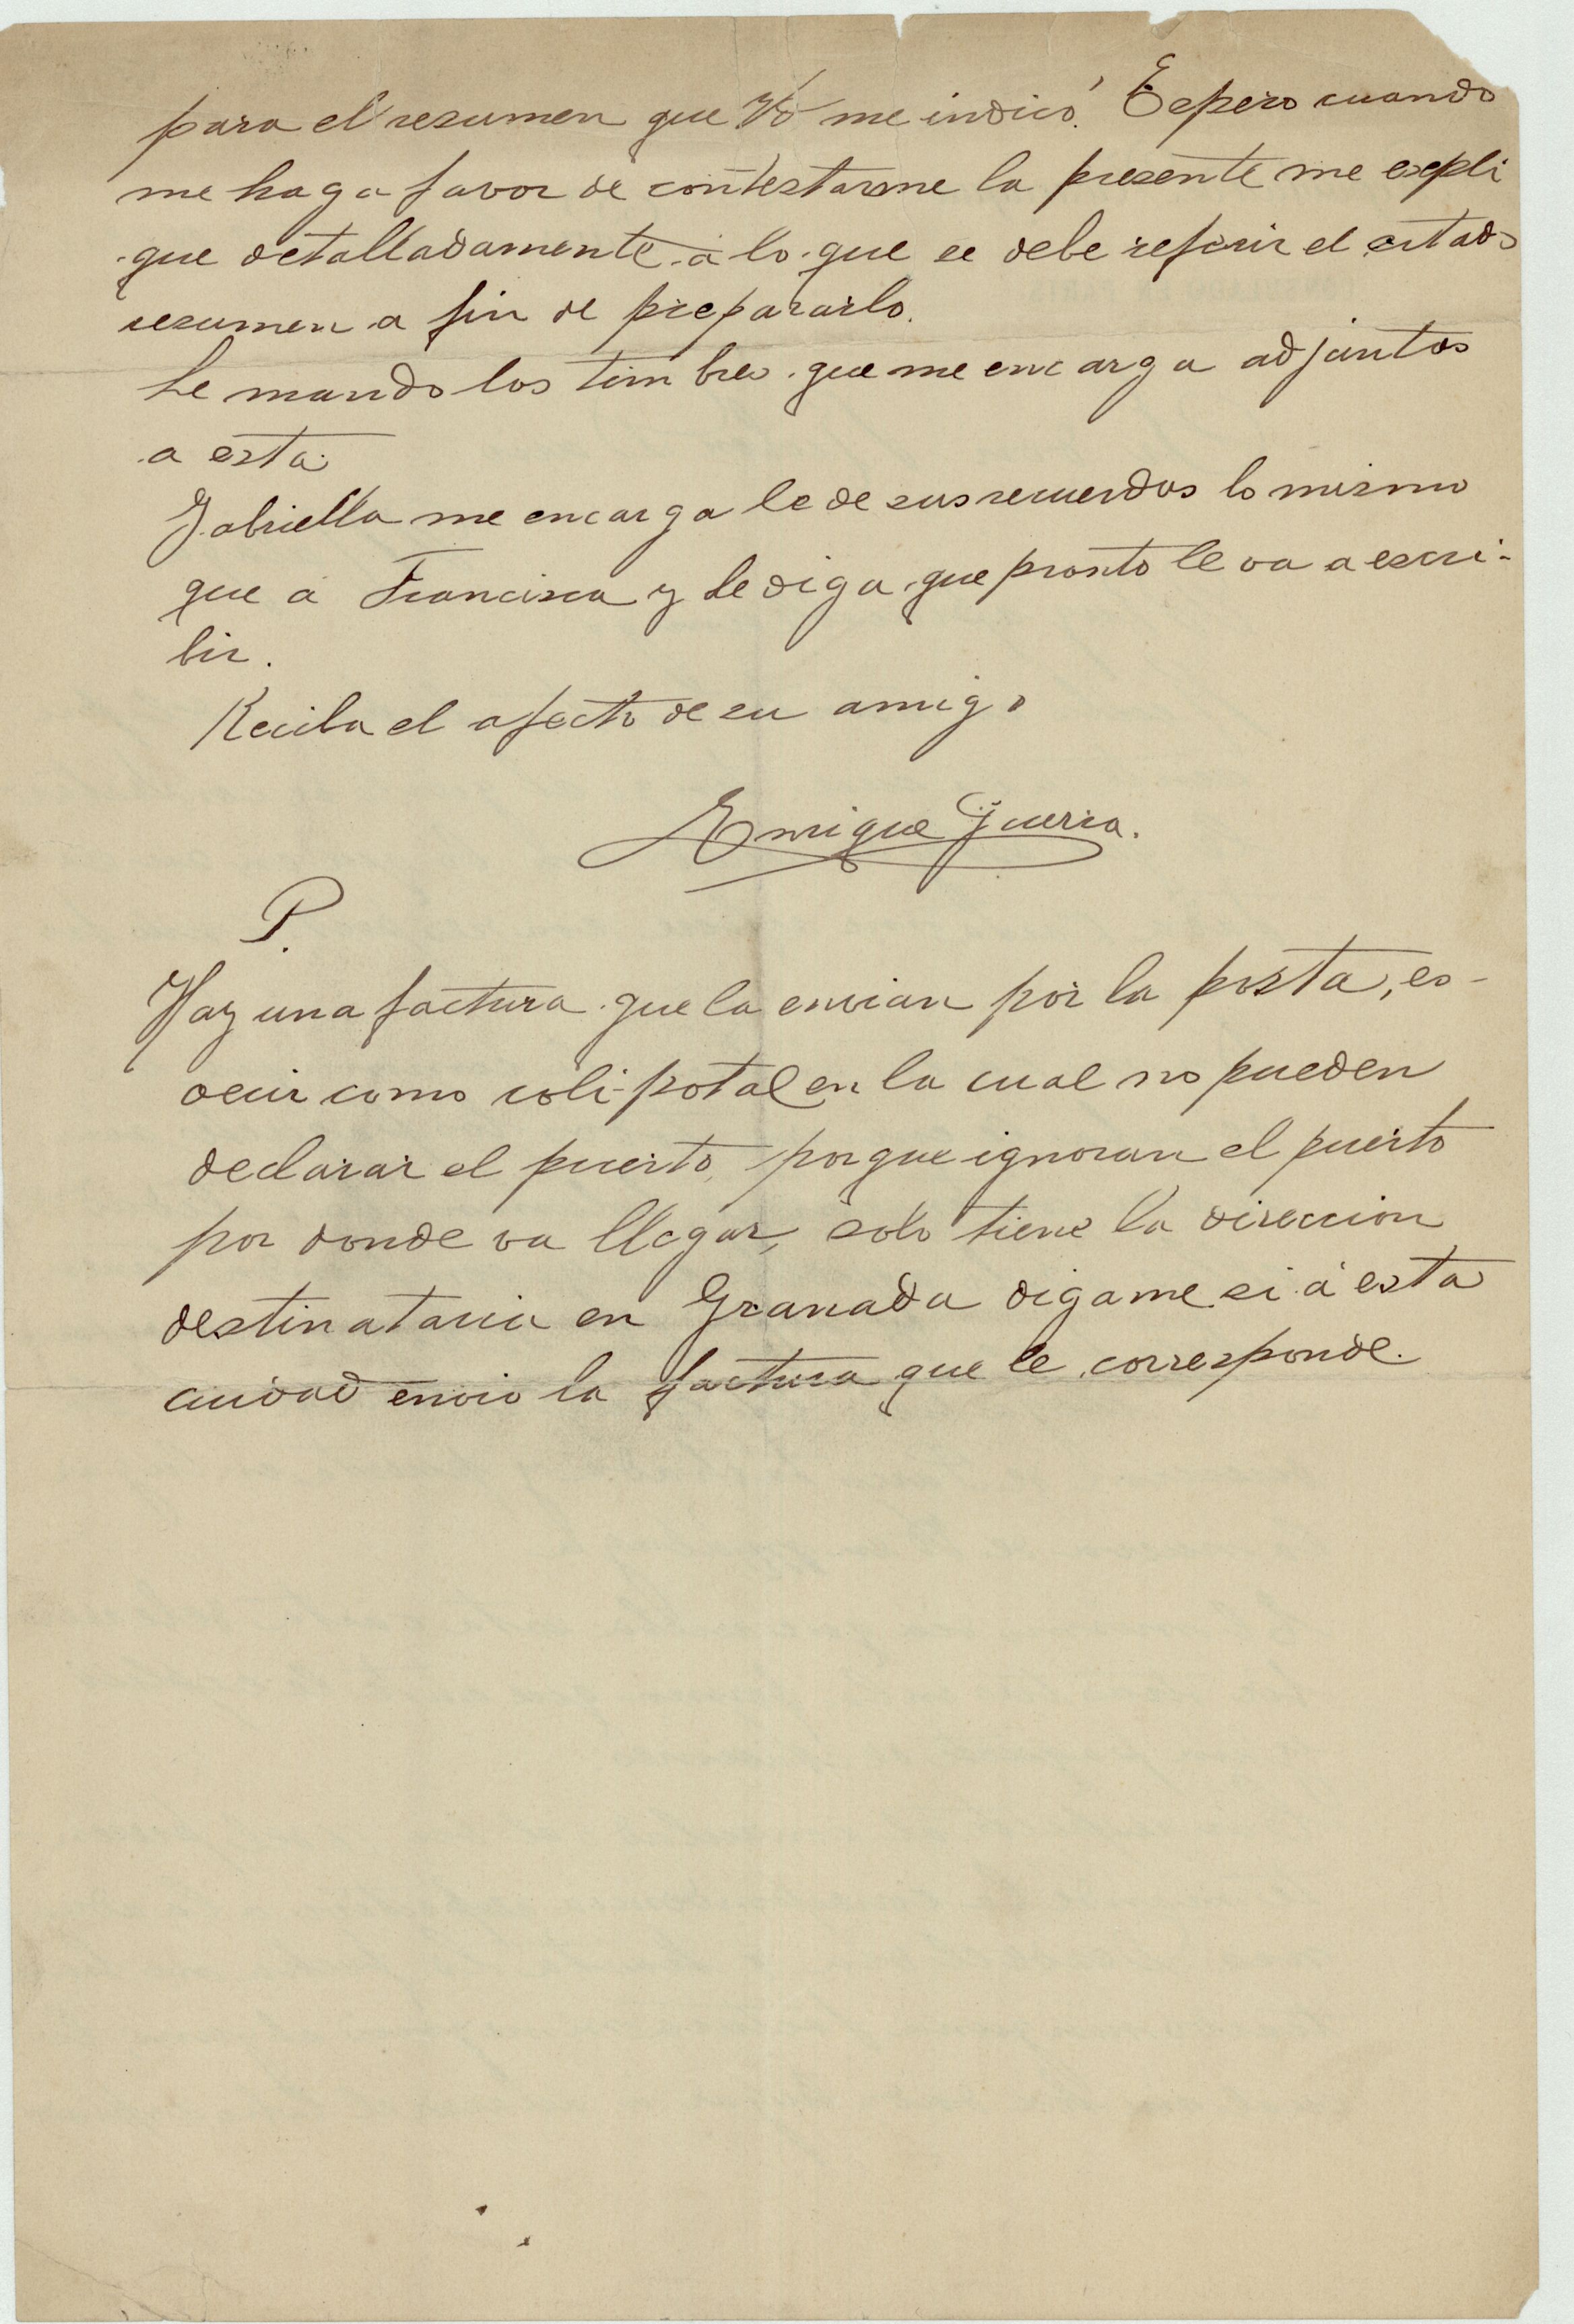 para el resumen que Vd me indicó. Espero cuando
me haga favor de contestarme la presente me expli
que detalladamente á lo que se debe referir el estado
resumen a fin de prepararlo.
Le mando los timbres que me encarga adjuntos
a esta
Gabriella me encarga le de sus recuerdos lo mismo
que á Francisca y le diga que pronto le va a escri-
bir.
Reciba el afecto de su amigo
Enrique Guerra.
P.
Hay una factura que la envian por la posta, es-
decir como coli-potal en la cual no pueden
declarar el puerto, porque ignoran el puerto
por donde va llegar, solo tiene la direccion
destinataria en Granada digame si á esta
ciudad envio la factura que le corresponde.